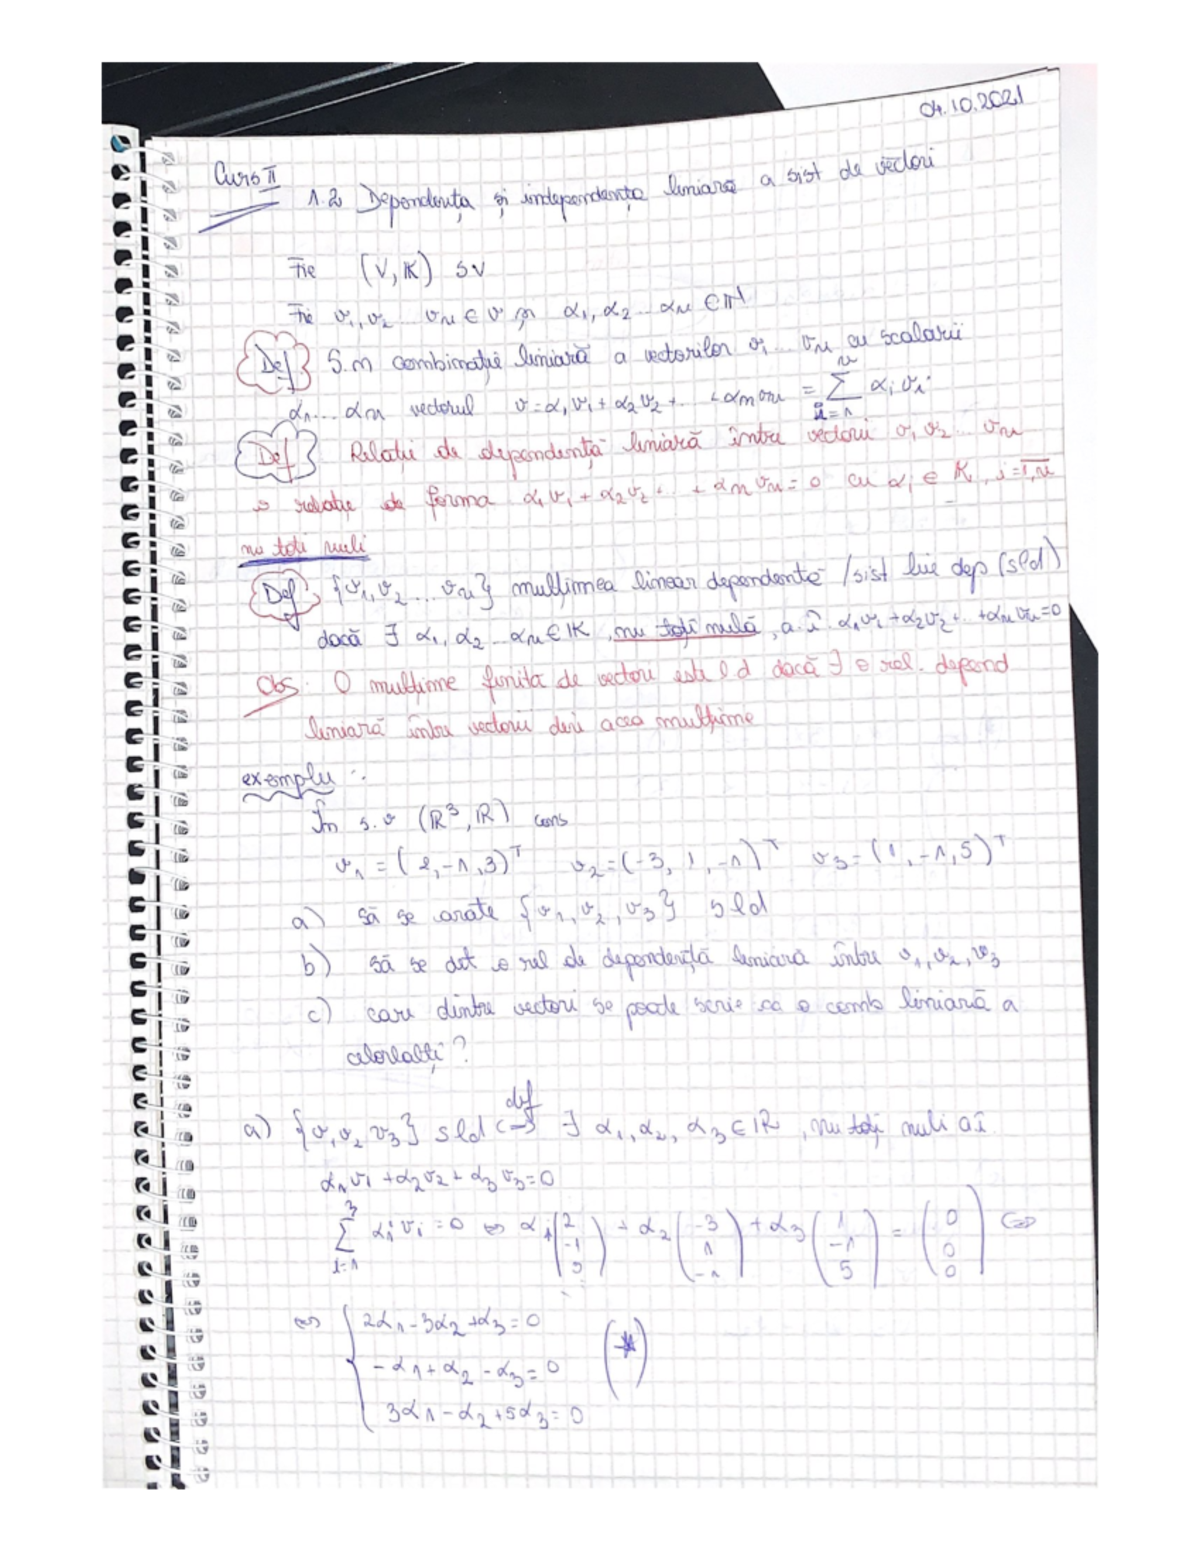 04.10.2021
Curs II
1.2 Dependența și independența liniară a sist de vectori
Fie (V, K) sv
Fie v₁, v₂ ... vₙ ∈ v și α₁, α₂ ... αₙ ∈
Def S.n combinație liniară a vectorilor v₁ ... vₙ cu scalarii
α₁ ... αₙ vectorul v = α₁v₁ + α₂v₂ + ... + αₙvₙ = ∑ᵢ₌₁ⁿ αᵢvᵢ
Def Relație de dependență liniară între vectorii v₁ v₂ ... vₙ
o relație de forma α₁v₁ + α₂v₂ + ... + αₙvₙ = 0 cu αᵢ ∈ K, i = 1,n
nu toți nuli
Def {v₁, v₂ ... vₙ} mulțimea liniar dependentă / sist lin dep (sld)
dacă ∃ α₁, α₂ ... αₙ ∈ K, nu toți nulă, a.î. α₁v₁ + α₂v₂ + ... + αₙvₙ = 0
Obs: O mulțime finita de vectori este l d dacă ∃ o rel. depend
liniară între vectorii din acea mulțime
exemplu :
În s.v (R³, R) cons
v₁ = (2, -1, 3)ᵀ v₂ = (-3, 1, -1)ᵀ v₃ = (1, -1, 5)ᵀ
a) să se arate {v₁, v₂, v₃} sld
b) să se det o rel de dependență liniară între v₁, v₂, v₃
c) care dintre vectori se poate scrie ca o comb liniară a
celorlalți?
a) {v₁ v₂ v₃} sld ⇔ def ∃ α₁, α₂, α₃ ∈ R, nu toți nuli aî.
α₁v₁ + α₂v₂ + α₃v₃ = 0
∑ᵢ₌₁³ αᵢvᵢ = 0 ⇔ α₁ (2 -1 3) + α₂ (-3 1 -1) + α₃ (1 -1 5) = (0 0 0) ⇔
⇔ { 2α₁ - 3α₂ + α₃ = 0 (*)
-α₁ + α₂ - α₃ = 0
3α₁ - α₂ + 5α₃ = 0